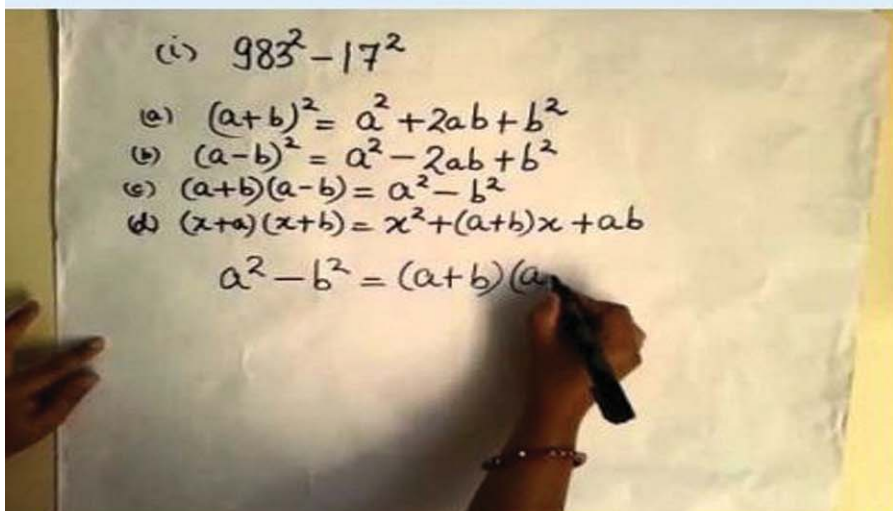 (i) 983² - 17²
(a) (a+b)² = a² + 2ab + b²
(b) (a-b)² = a² - 2ab + b²
(c) (a+b)(a-b) = a² - b²
(d) (x+a)(x+b) = x² + (a+b)x + ab
a² - b² = (a+b)(a